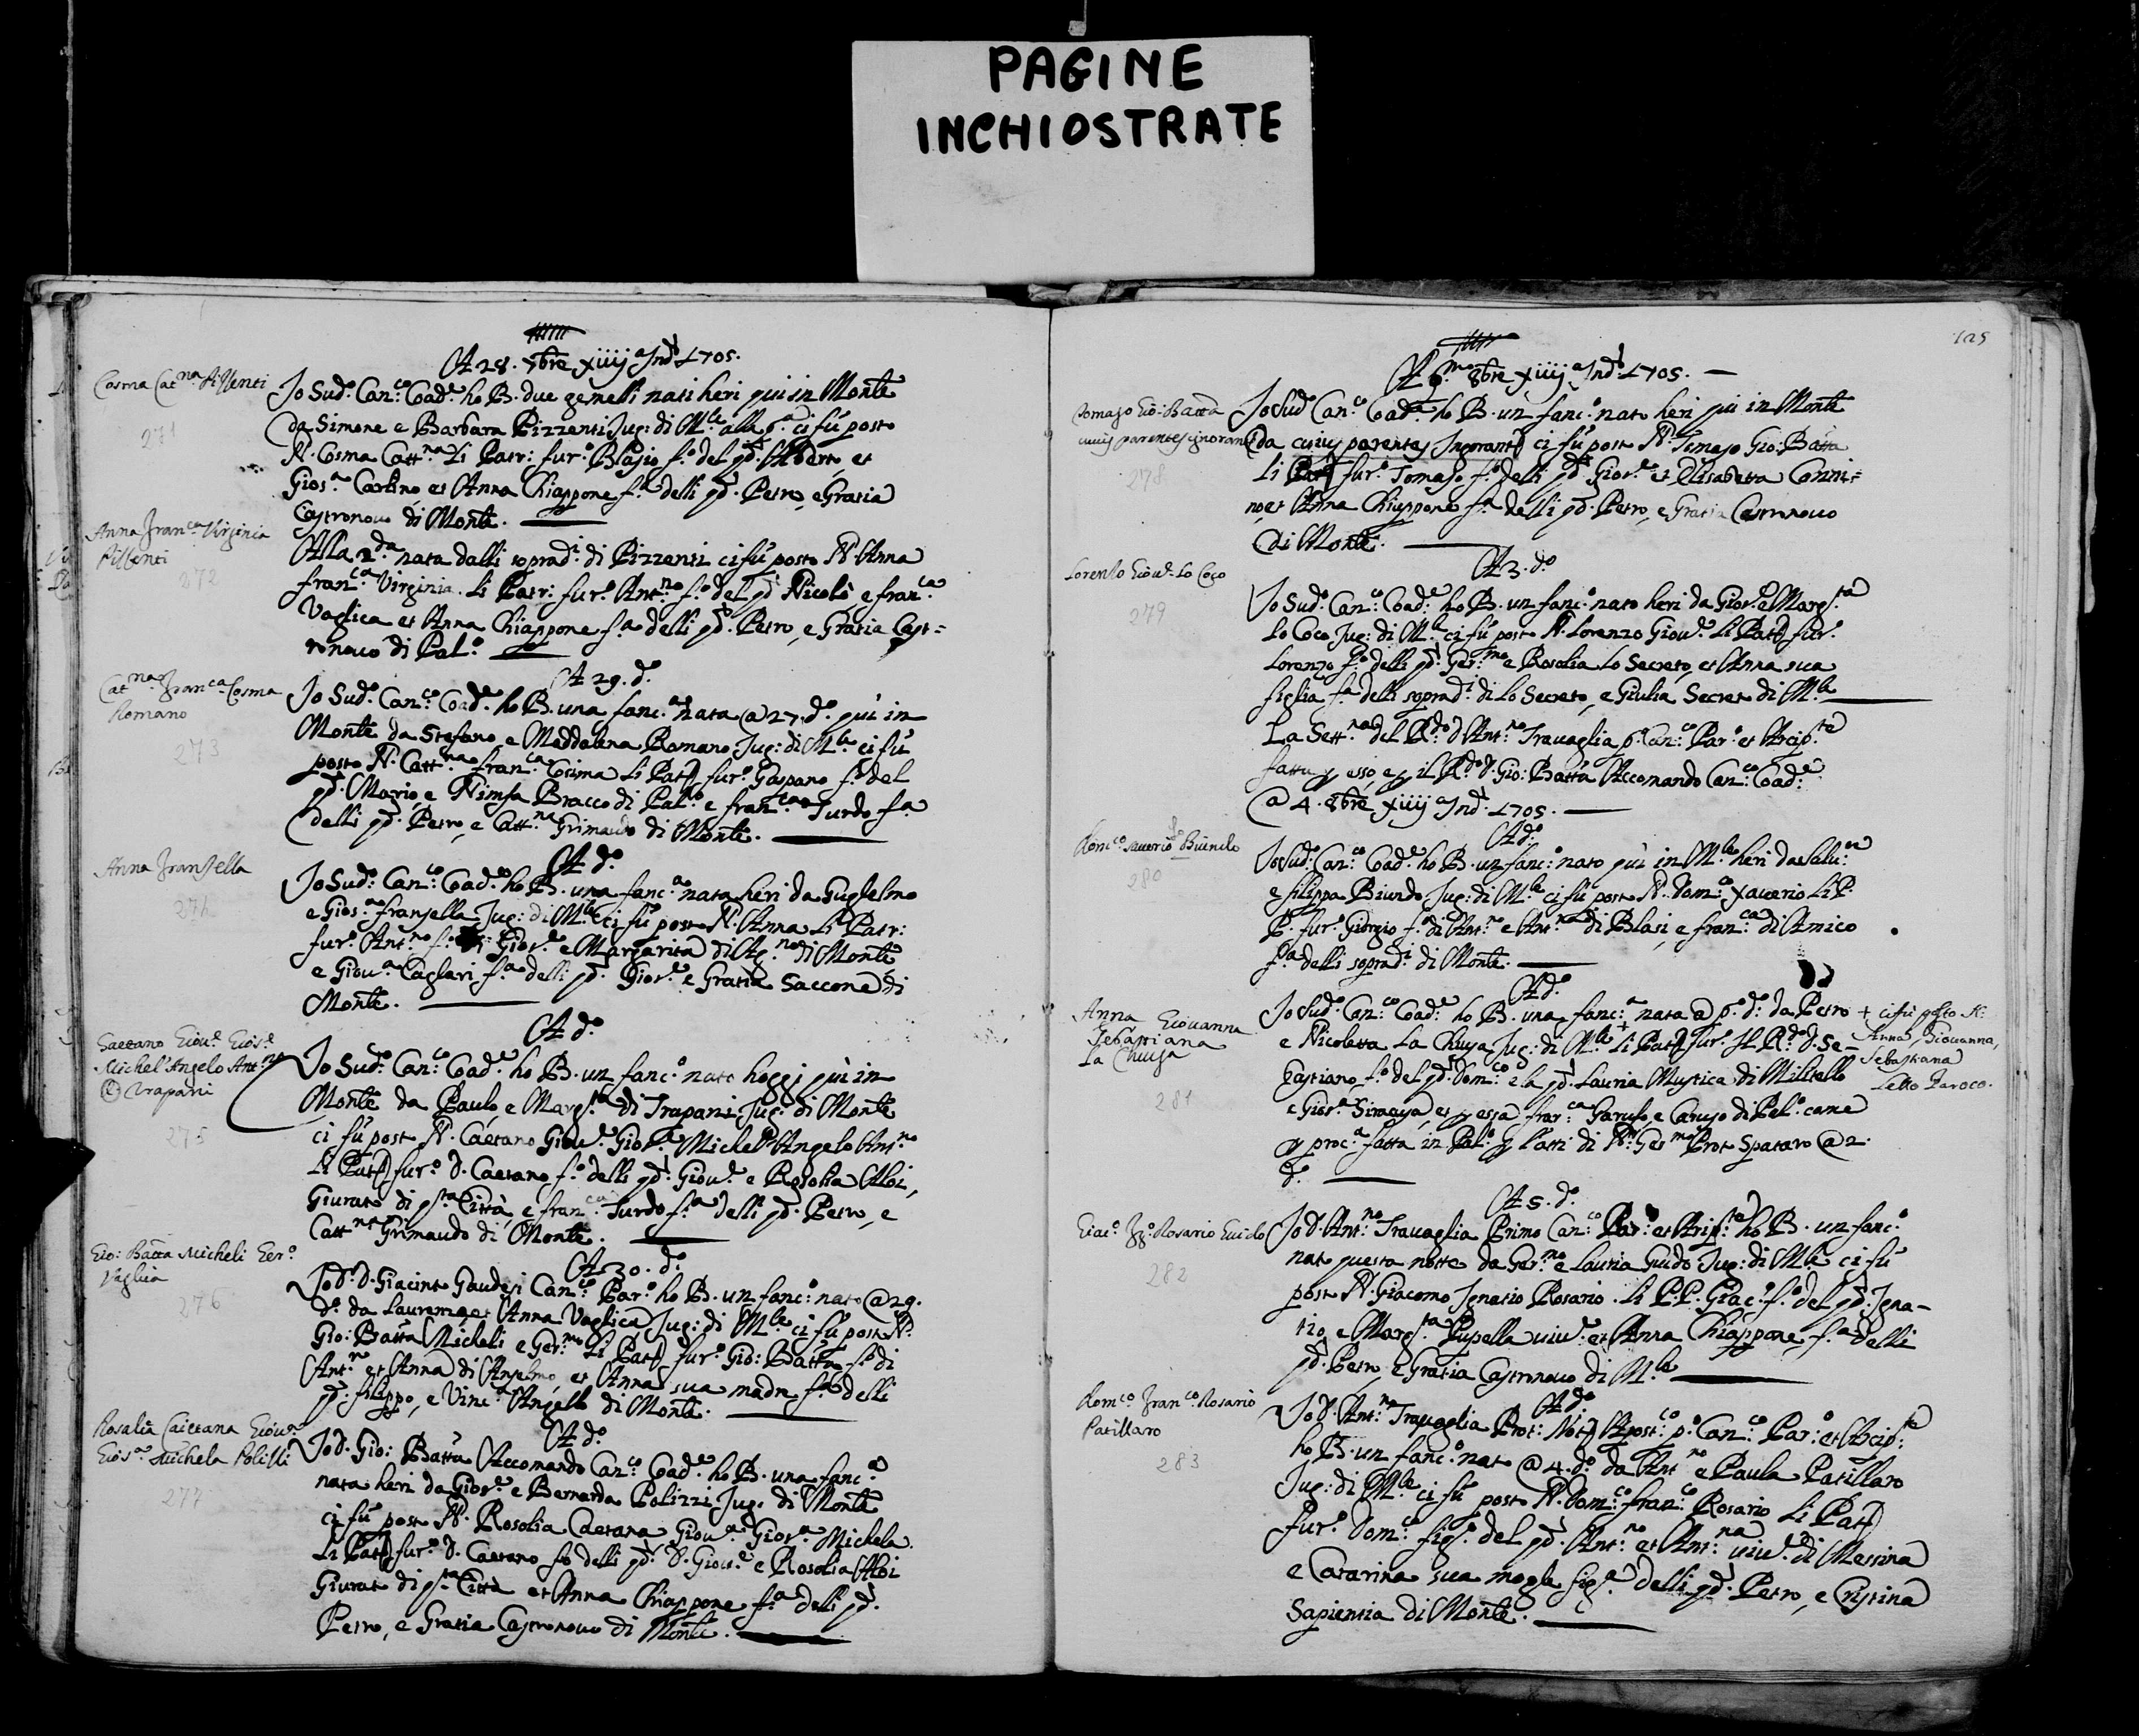 PAGINE
INCHIOSTRATE
A 28. 7bre xiiij a Ind. 1705.
Cosma Cat.na Pizzenti
271
Io Sud.o Can.co Coad.e ho B. due gemelli nati heri qui in Monte
da Simone e Barbara Pizzenti Jug: di M.le alla p.a ci fù posto
N. Cosma Catt.na Li Patr: fur.o Blasio f.o del qd. Alberto, et
Gios.a Carlino, et Anna Chiappone f.a delli qd. Petro, e Gratia
Castronouo di Monte.
Anna Fran.ca Virginia
Pizzenti
272
Alla 2.da nata dalli soprad.i di Pizzenti ci fù posto N. Anna
fran.ca Virginia. Li Patr: fur.o Ant.no f.o del qd. Nicolò e fran.ca
Vaglica et Anna Chiappone f.a delli qd. Petro, e Gratia Cast=
ronouo di Pal.o
A 29. d.o
Cat.na Fran.ca Cosma
Romano
273
Io Sud.o Can.co Coad.e ho B. una fanc.a nata @ 27. d.o qui in
Monte da Stefano e Maddalena Romano Jug: di M.le ci fù
posto N. Catt.na fran.ca Cosima Li Patr fur.o Gaspano f.o del
qd. Mario, e Nimfa Bracco di Pal.o e fran.ca Turdo f.a
delli qd. Petro, e Catt.na Grimaudo di Monte.
A d.o
Anna Franzella
274
Io Sud.o Can.co Coad.e ho B. una fanc.a nata heri da Guglielmo
e Gios.a Franzella Jug: di M.le ci fù posto N. Anna Li Patr:
fur.o Ant.no f.o di Gios.e e Margarita di Ag.no di Monte
e Giou.a Caglari f.a delli qd. Gios.e e Gratia Saccone di
Monte.
A d.o
Gaetano Giou.e Gios.e
Michel'Angelo Ant.no
Trapani
275
Io Sud.o Can.co Coad.e ho B. un fanc.o nato hoggi qui in
Monte da Paulo, e Marg.ta di Trapani Jug: di Monte
ci fù posto N. Caetano Giou.e Gios.e Michel'Angelo Ant.no
Li Patr fur.o D. Caetano f.o delli qd. Giou.e e Rosolia Aloi,
Giurato di q.sta Città, e fran.ca Turdo f.a delli qd. Petro, e
Catt.na Grimaudo di Monte.
A 30. d.o
Gio: Batta Micheli Ger.o
Vaglica
276
Io D. Giacinto Gaudesi Can.co Par.o ho B. un fanc.o nato @ 29.
d.o da Laurenzo, et Anna Vaglica Jug: di M.le ci fù posto N.
Gio: Batta Micheli e Ger.mo Li Patr fur.o Gio: Batta f.o di
Ant.no et Anna di Anselmo, et Anna sua madre f.a delli
qd. filippo, e Vinc.a Angello di Monte.
A d.o
Rosalia Caietana Giou.a
Gios.a Michela Polizzi
277
Io D. Gio: Batta Accomando Can.co Coad.e ho B. una fanc.a
nata heri da Gios.e e Bernarda Polizzi Jug: di Monte
ci fù posto N. Rosolia Caetana Giou.a Gios.a Michela.
Li Patr fur.o D. Caetano f.o delli qd. D. Giou.e e Rosolia Aloi
Giurato di q.sta Città et Anna Chiappone f.a delli qd.
Petro, e Gratia Castronouo di Monte.
125
A p.mo 8bre xiiij a Ind. 1705.
Tomaso Gio: Batta
cuius parentes ignorant
278
Io Sud.o Can.co Coad.e ho B. un fanc.o nato heri qui in Monte
da cuius parentes Ingorant ci fù posto N. Tomaso Gio: Batta
Li Patr fur.o Tomaso f.o delli qd. Gios.e et Elisabetta Conni=
no, et Anna Chiappone f.a delli qd. Petro, e Gratia Castronouo
di Monte.
A 3. d.o
Lorenzo Giou.e Lo Coco
279
Io Sud.o Can.co Coad.e ho B. un fanc.o nato heri da Gios.e e Marg.ta
Lo Coco Jug: di M.le ci fù posto N. Lorenzo Giou.e Li Patr fur.o
Lorenzo f.o delli qd. Ger.mo e Rosolia Lo Secreto, et Anna sua
figlia f.a delli soprad.i di Lo Secreto, e Giulia Secreto di M.le
La Sett.na del R.do D. Ant.no Trauaglia p.o Can.co Par.o et Arcip.te
fatta p esso, e p il R.do D. Gio: Batta Accomando Can.co Coad.e
@ 4. 8bre xiiij a Ind. 1705.
A d.o
Dom.co Sauerio Biundo
280
Io Sud.o Can.co Coad.e ho B. un fanc.o nato qui in M.le heri da Salu.re
e filippa Biundo Jug: di M.le ci fù posto N. Dom.co Xauerio Li P.
P. fur.o Giorgio f.o di Ant.no e Ant.na di Blasi, e fran.ca di Amico
f.a delli soprad.i di Monte.
A d.o
Anna Giouanna
Sebastiana
La Chiusa
281
Io Sud.o Can.co Coad.e ho B. una fanc.a nata @ p.o d.o da Petro
e Nicoletta La Chiusa Jug: di M.le + Li Patr fur.o Il R.do D. Se-
bastiano f.o del qd. Dom.co e la qd. Lauria Mustica di Militello
e Gios.a Siracusa, et p essa fran.ca Garufo, e Caruso di Pal.o came
p proc.a fatta in Pal.o p l'atti di N.r Ger.mo Prot. Spataro @ 2.
d.o
+ ci fu posto N.
Anna, Giouanna,
Sebastiana
Letto Paroco.
A 5. d.o
Giac.o Ig.o Rosario Guido
282
Io D. Ant.no Trauaglia Primo Can.co Par.o et Arcip.te ho B. un fanc.o
nato questa notte da Ger.mo e Lauria Guido Jug: di M.le ci fù
posto N. Giacomo Ignatio Rosario. Li P.P. Giac.o f.o del qd. Igna-
tio, e Marg.ta Pupella uiu.e et Anna Chiappone f.a delli
qd. Petro, e Gratia Castronouo di M.le
A d.o
Dom.co Fran.co Rosario
Patillaro
283
Io D. Ant.no Trauaglia Prot: Not. Apost.co p.o Can.co Par.o et Arcip.te
ho B. un fanc.o nato @ 4. d.o da Ant.no e Paula Patillaro
Jug: di M.le ci fù posto N. Dom.co fran.co Rosario Li Patr
fur.o Dom.co fig.o del qd. Ant.no et Ant.na uiu.e di Messina
e Catarina sua mogle fig.a delli qd. Petro, e Cristina
Sapientia di Monte.